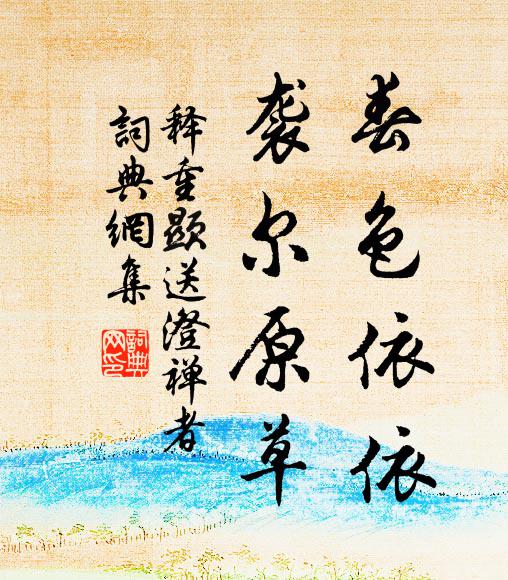 春色依依
袭尔原草
释重顯送澄禅者
詞典網集
詞典
网印